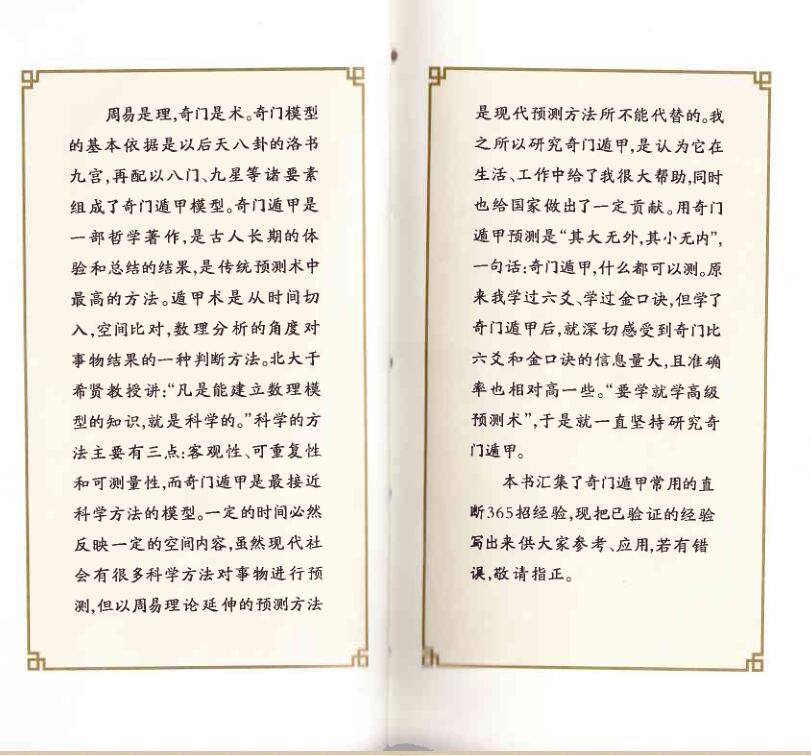 周易是理,奇门是术。奇门模型
的基本依据是以后天八卦的洛书
九宫,再配以八门、九星等诸要素
组成了奇门遁甲模型。奇门遁甲是
一部哲学著作,是古人长期的体
验和总结的结果,是传统预测术中
最高的方法。遁甲术是从时间切
入,空间比对,数理分析的角度对
事物结果的一种判断方法。北大于
希贤教授讲:“凡是能建立数理模
型的知识,就是科学的。”科学的方
法主要有三点:客观性、可重复性
和可测量性,而奇门遁甲是最接近
科学方法的模型。一定的时间必然
反映一定的空间内容,虽然现代社
会有很多科学方法对事物进行预
测,但以周易理论延伸的预测方法
是现代预测方法所不能代替的。我
之所以研究奇门遁甲,是认为它在
生活、工作中给了我很大帮助,同时
也给国家做出了一定贡献。用奇门
遁甲预测是“其大无外,其小无内”,
一句话:奇门遁甲,什么都可以测。原
来我学过六爻、学过金口诀,但学了
奇门遁甲后,就深切感受到奇门比
六爻和金口诀的信息量大,且准确
率也相对高一些。“要学就学高级
预测术”,于是就一直坚持研究奇
门遁甲。
本书汇集了奇门遁甲常用的直
断365招经验,现把已验证的经验
写出来供大家参考、应用,若有错
误,敬请指正。